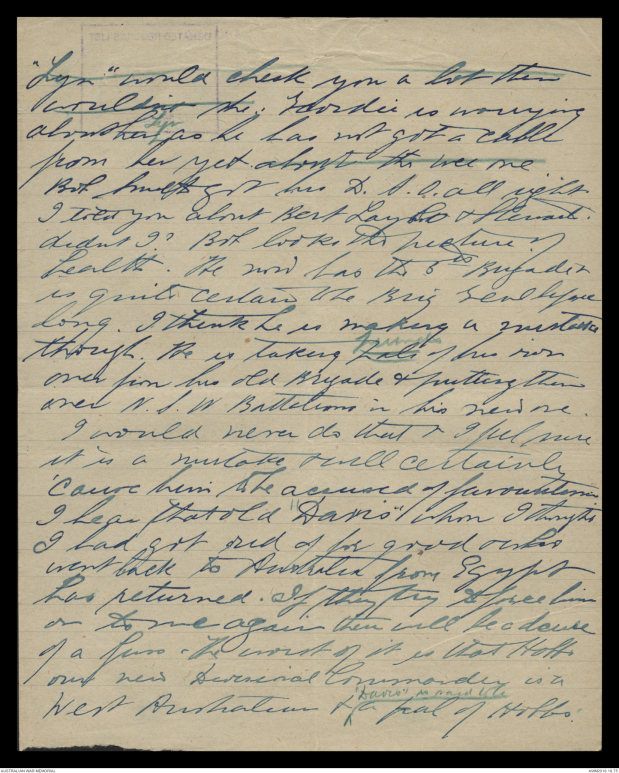 "Lyn" would check you a lot then
wouldn't she. Geordie is worrying
about her as he has not got a cable
from her yet about the wee one
Bob Smith got his D.S.O. all right
I told you about Bert Layh & Stewart
didn't I? Bob looks the picture of
health. He now has the 5th Brigade &
is quite certain to be Brig Genl before
long. I think he is making a mistake
though. He is taking of his own
over from his old Brigade & putting them
over N.S.W Battalions in his new one.
I would never do that & I feel sure
it is a mistake & will certainly
'cause him to be accused of favouritism
I hear that old "Davis" whom I thought
I had got rid of for good & who
went back to Australia from Egypt
has returned. If they try to force him
on to me again there will be a deuce
of a fuss. The worst of it is that Hobbs
our new Divisional Commander is a
"Davis" is said to be
West Australian & a pal of Hobbs.
AUSTRALIAN WAR MEMORIAL